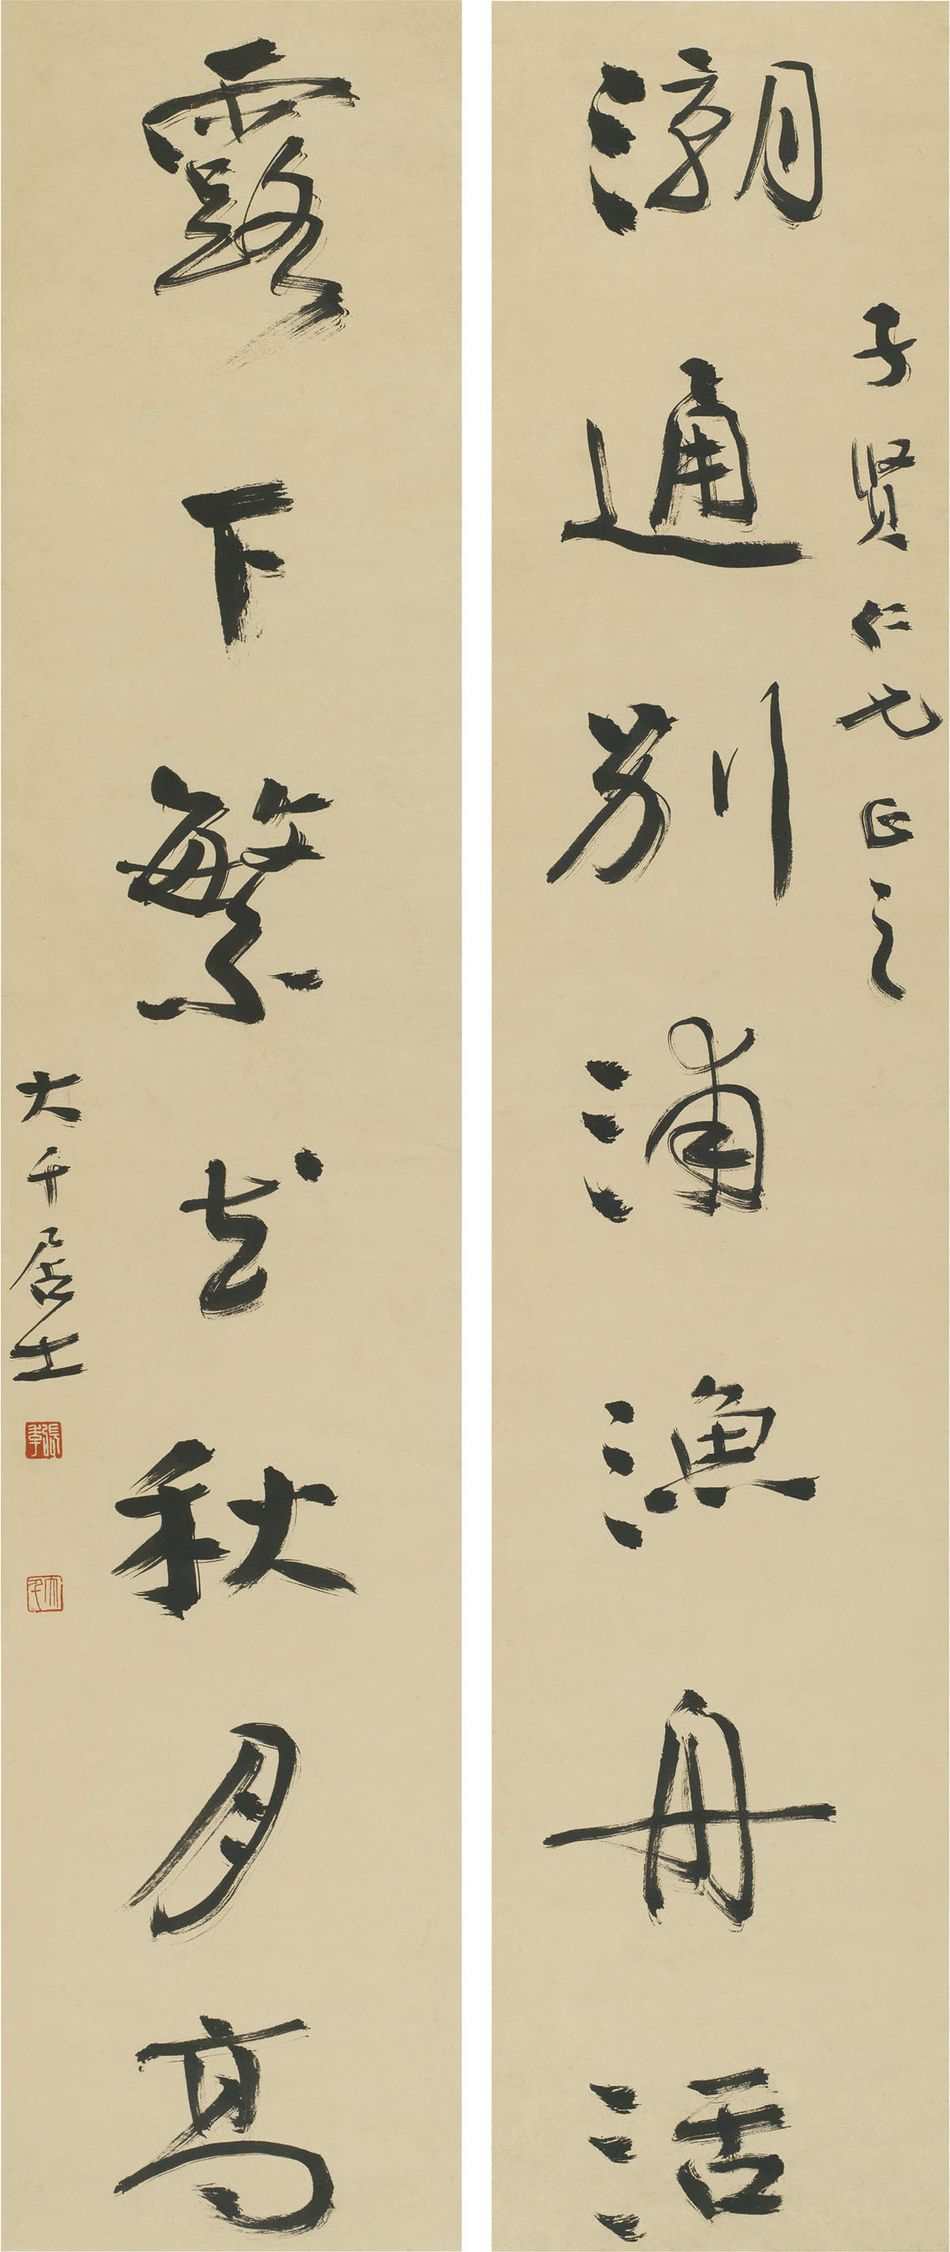 子賢仁兄正之
潮通別浦漁舟活
露下繁花秋月高
大千居士
張爰
大千